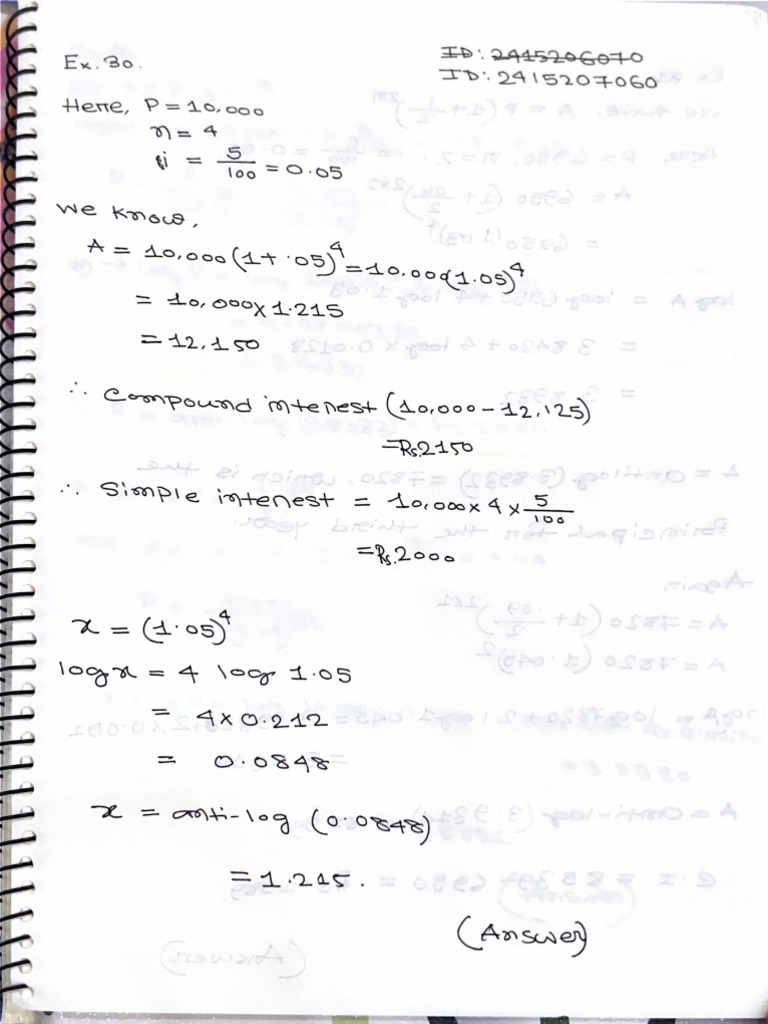 Ex. 30.
ID: 2415206070
ID: 2415207060
Here, P = 10,000
n = 4
i = 5/100 = 0.05
We know,
A = 10,000 (1 + .05)^4 = 10,000(1.05)^4
= 10,000 x 1.215
= 12,150
∴ Compound interest (10,000 - 12,125)
= Rs. 2150
∴ Simple interest = 10,000 x 4 x 5/100
= Rs. 2000
x = (1.05)^4
log x = 4 log 1.05
= 4 x 0.212
= 0.0848
x = anti-log (0.0848)
= 1.215.
(Answer)